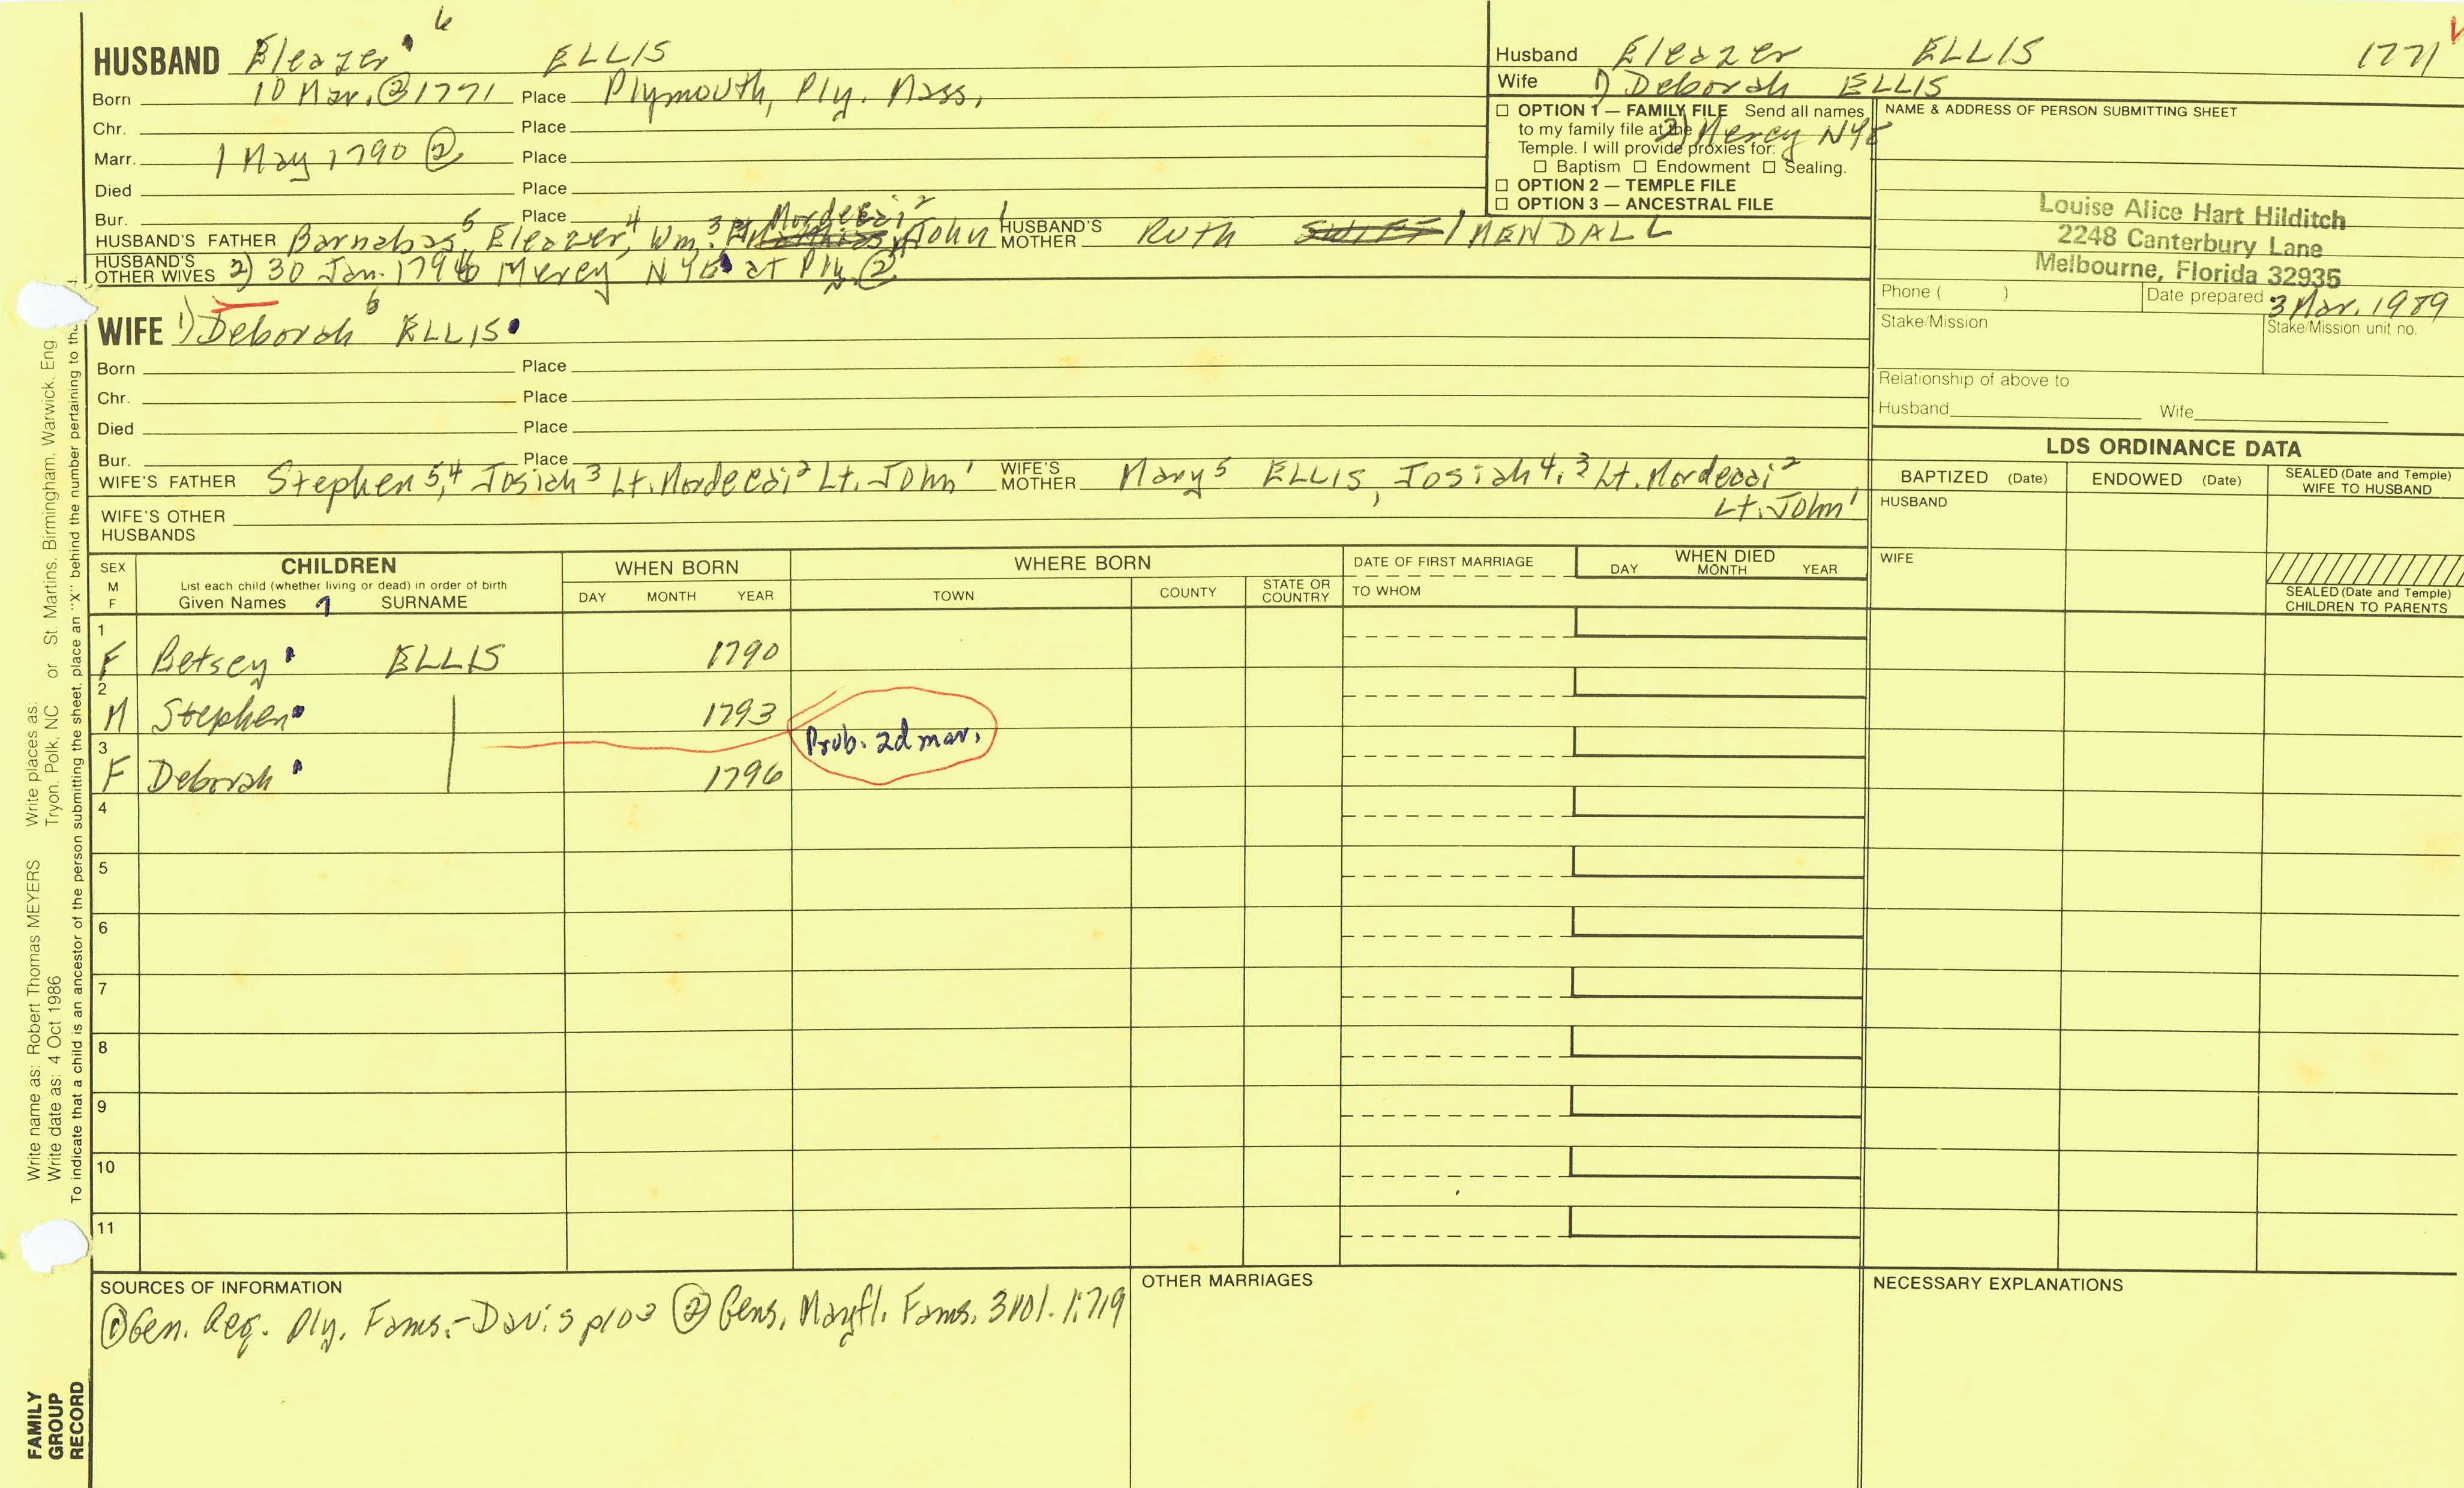 HUSBAND Eleazer 6 ELLIS
Born 10 Mar. ② 1771 Place Plymouth, Ply. Mass.
Chr. Place
Marr. 1 May 1790 ② Place
Died Place
Bur. Place
HUSBAND'S FATHER Barnabas 5, Eleazer, 4 Wm. 3 Mordecai 2 John 1 HUSBAND'S MOTHER Ruth SWIFT / MENDALL
HUSBAND'S OTHER WIVES 2) 30 Jan. 1796 Mercy NYE at Ply. ②
WIFE 1) Deborah 6 ELLIS
Born Place
Chr. Place
Died Place
Bur. Place
WIFE'S FATHER Stephen 5,4 Josiah 3 Lt. Mordecai 2 Lt. John 1 WIFE'S MOTHER Mary 5 ELLIS, Josiah 4, 3 Lt. Mordecai 2
Lt. John 1
WIFE'S OTHER HUSBANDS
Husband Eleazer ELLIS 1771
Wife 1) Deborah ELLIS
2) Mercy NYE
☐ OPTION 1 — FAMILY FILE Send all names
to my family file at the
Temple. I will provide proxies for:
☐ Baptism ☐ Endowment ☐ Sealing.
☐ OPTION 2 — TEMPLE FILE
☐ OPTION 3 — ANCESTRAL FILE
NAME & ADDRESS OF PERSON SUBMITTING SHEET
Louise Alice Hart Hilditch
2248 Canterbury Lane
Melbourne, Florida 32935
Phone ( ) Date prepared 3 Mar. 1989
Stake/Mission Stake/Mission unit no.
Relationship of above to
Husband Wife
LDS ORDINANCE DATA
BAPTIZED (Date) ENDOWED (Date) SEALED (Date and Temple) WIFE TO HUSBAND
HUSBAND
WIFE
SEALED (Date and Temple) CHILDREN TO PARENTS
SEX M F CHILDREN
List each child (whether living or dead) in order of birth
Given Names 7 SURNAME
WHEN BORN
DAY MONTH YEAR
WHERE BORN
TOWN COUNTY STATE OR COUNTRY
DATE OF FIRST MARRIAGE
TO WHOM
WHEN DIED
DAY MONTH YEAR
1 F Betsey ELLIS 1790
2 M Stephen 1793
Prob. 2d mar.
3 F Deborah 1796
4
5
6
7
8
9
10
11
SOURCES OF INFORMATION
① Gen. Reg. Ply. Fams.-Davis p103 ② Gens. Mayfl. Fams. 3vol. 1:719
OTHER MARRIAGES
NECESSARY EXPLANATIONS
Write name as: Robert Thomas MEYERS Write places as:
Write date as: 4 Oct 1986 Tryon, Polk, NC or St. Martins, Birmingham, Warwick, Eng.
To indicate that a child is an ancestor of the person submitting the sheet, place an "X" behind the number pertaining to
FAMILY
GROUP
RECORD